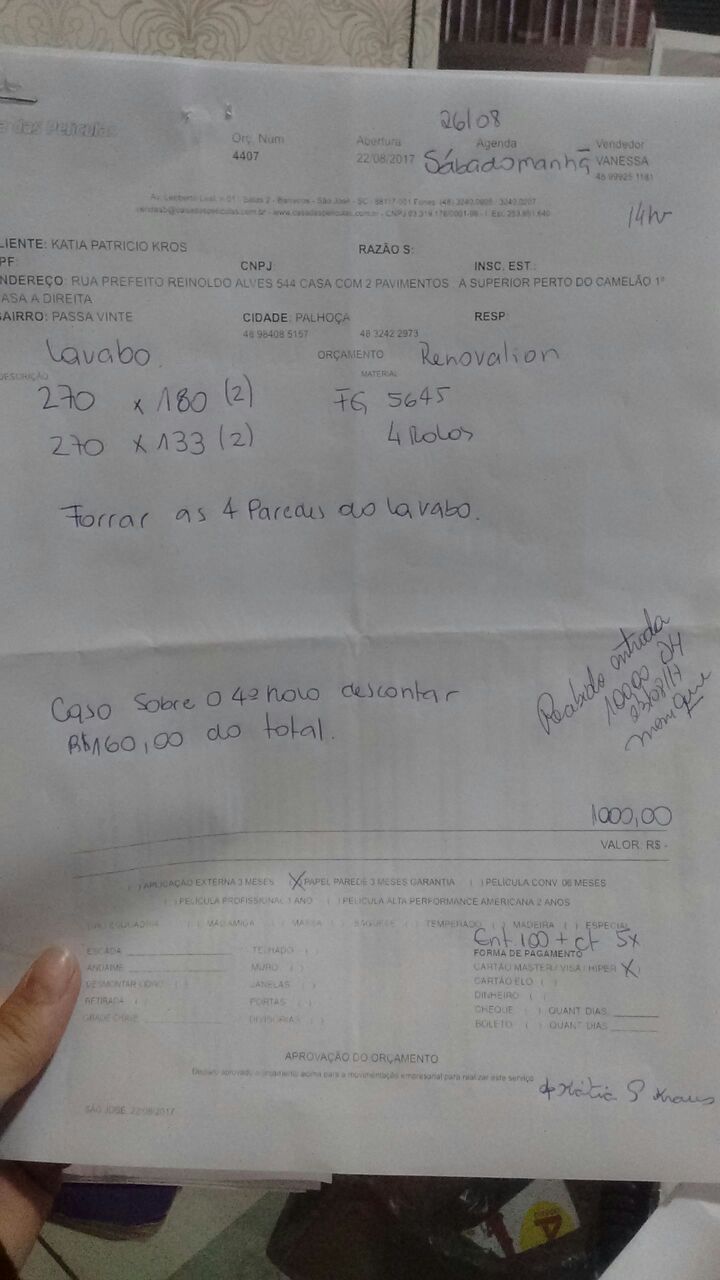 das Películas
26/08
Orç. Num Abertura Agenda Vendedor
4407 22/08/2017 Sábado manhã VANESSA
48 99925 1181
14hr
Av. Leoberto Leal, n 01 - Salas 2 - Barreiros - São José - SC - 88117-001 Fones (48) 3240.0606 / 3240.0207
CLIENTE: KATIA PATRICIO KROS RAZÃO S:
PF: CNPJ: INSC. EST.:
NDEREÇO: RUA PREFEITO REINOLDO ALVES 544 CASA COM 2 PAVIMENTOS A SUPERIOR PERTO DO CAMELÃO 1º
ASA A DIREITA
BAIRRO: PASSA VINTE CIDADE: PALHOÇA RESP:
48 98408 5157 48 3242 2973
Lavabo ORÇAMENTO Renovalion
DESCRIÇÃO MATERIAL
270 x 180 (2) FG 5645
270 x 133 (2) 4 Rolos
Forrar as 4 Paredes do lavabo.
Recebido entrada
100,00
23/08/17
monique
Caso Sobre o 4º rolo descontar
R$160,00 do total.
1000,00
VALOR: R$ -
( ) APLICAÇÃO EXTERNA 3 MESES (X) PAPEL PAREDE 3 MESES GARANTIA ( ) PELÍCULA CONV. 06 MESES
( ) PELÍCULA PROFISSIONAL 1 ANO ( ) PELÍCULA ALTA PERFORMANCE AMERICANA 2 ANOS
TEMPERADO ( ) MADEIRA ( ) ESPECIAL
Ent 100 + ct 5x
ESCADA TELHADO ( ) FORMA DE PAGAMENTO
ANDAIME MURO ( ) CARTÃO MASTER / VISA / HIPER X
DESMONTAR VIDRO ( ) JANELAS ( ) CARTÃO ELO ( )
RETIRADA ( ) PORTAS ( ) DINHEIRO ( )
DIVISÓRIAS ( ) CHEQUE ( ) QUANT. DIAS
BOLETO ( ) QUANT. DIAS
APROVAÇÃO DO ORÇAMENTO
Declaro aprovado o orçamento acima para a movimentação empresarial para realizar este serviço
Kátia P Kraus
SÃO JOSÉ, 22/08/2017